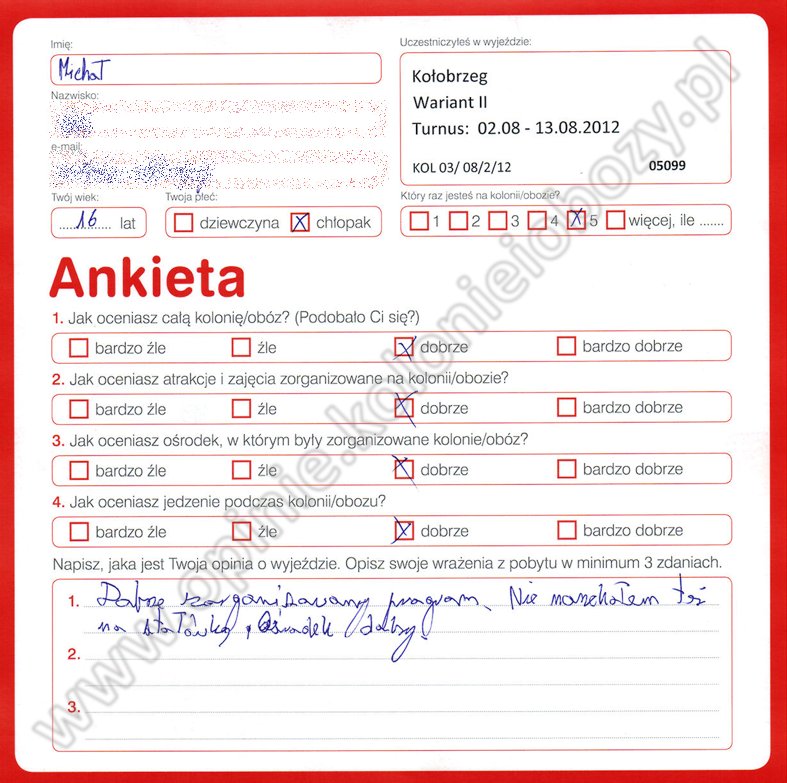 Imię:
Michał
Nazwisko:
e-mail:
Twój wiek:
16 lat
Twoja płeć:
dziewczyna X chłopak
Uczestniczyłeś w wyjeździe:
Kołobrzeg
Wariant II
Turnus: 02.08 - 13.08.2012
KOL 03/ 08/2/12 05099
Który raz jesteś na kolonii/obozie?
1 2 3 4 X 5 więcej, ile .......
Ankieta
1. Jak oceniasz całą kolonię/obóz? (Podobało Ci się?)
bardzo źle źle X dobrze bardzo dobrze
2. Jak oceniasz atrakcje i zajęcia zorganizowane na kolonii/obozie?
bardzo źle źle X dobrze bardzo dobrze
3. Jak oceniasz ośrodek, w którym były zorganizowane kolonie/obóz?
bardzo źle źle X dobrze bardzo dobrze
4. Jak oceniasz jedzenie podczas kolonii/obozu?
bardzo źle źle X dobrze bardzo dobrze
Napisz, jaka jest Twoja opinia o wyjeździe. Opisz swoje wrażenia z pobytu w minimum 3 zdaniach.
1. Dobrze zorganizowany program. Nie narzekałem też
na stołówkę, Ośrodek dobry.
2.
3.
www.opinie.kolonieiobozy.pl